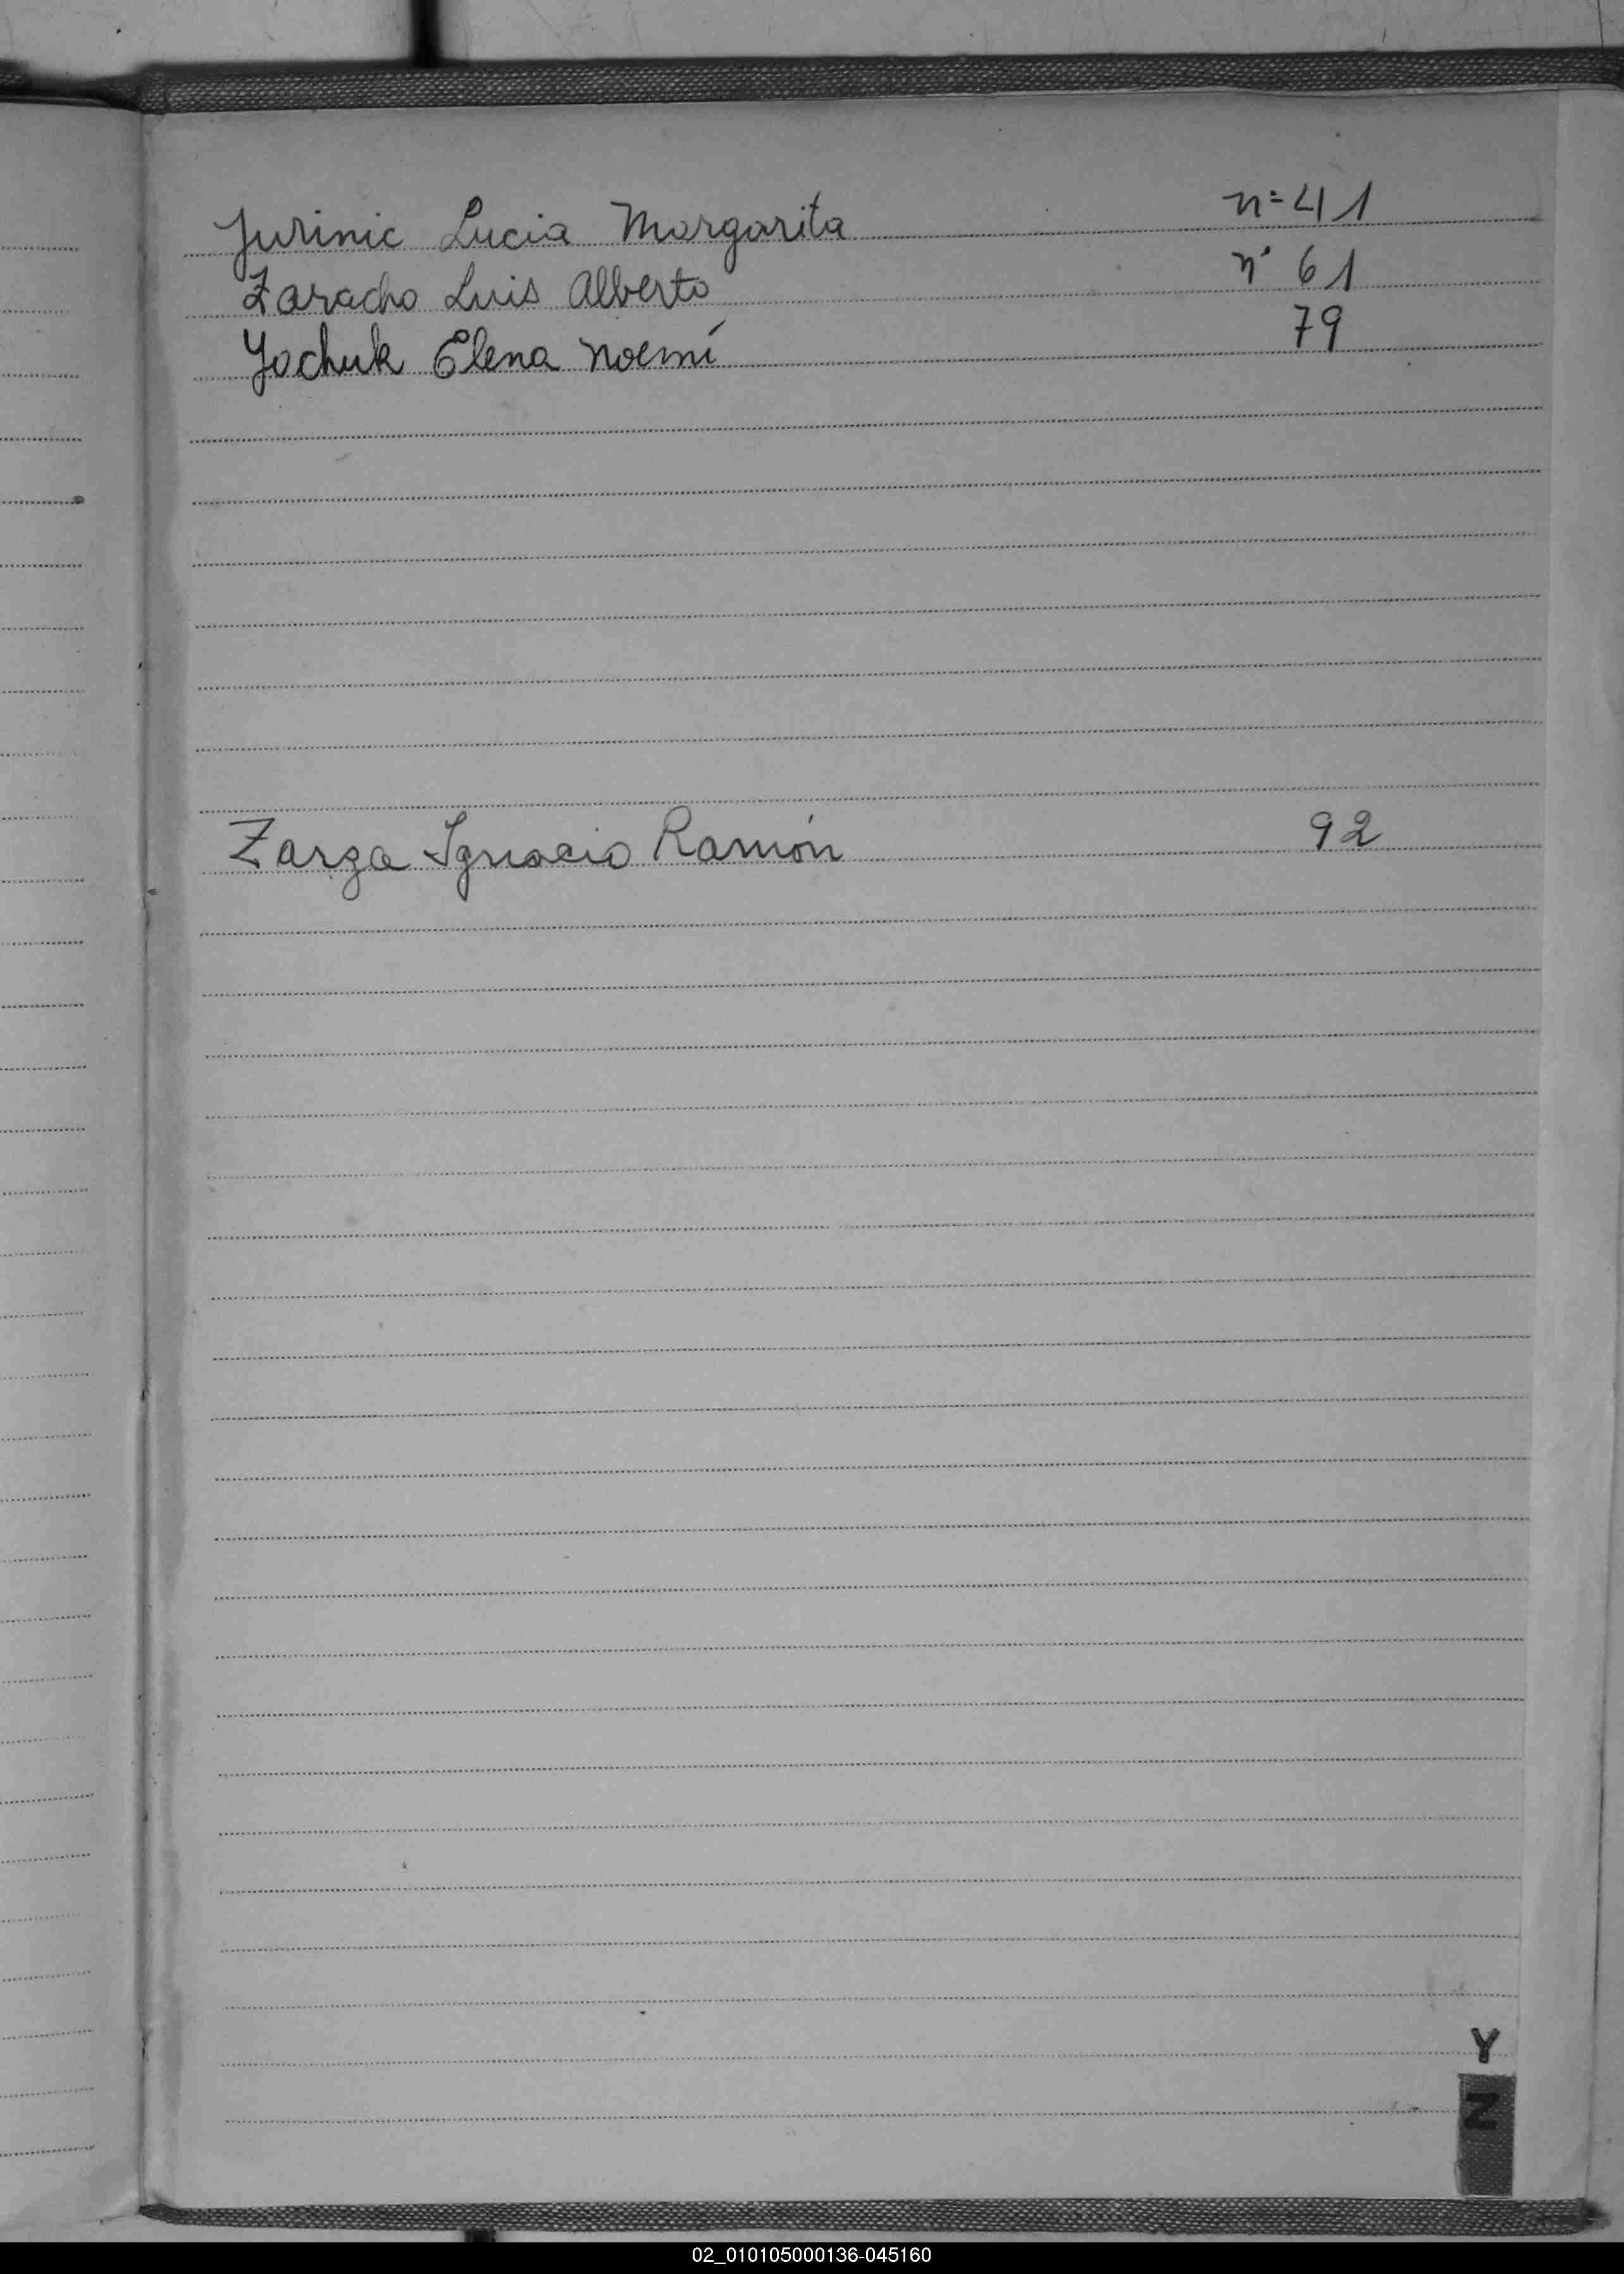 Yurinic Lucia Margarita n=41
Zaracho Luis Alberto n° 61
Yochuk Elena Noemí 79
Zarza Ignacio Ramón 92
Y
Z
02_010105000136-045160